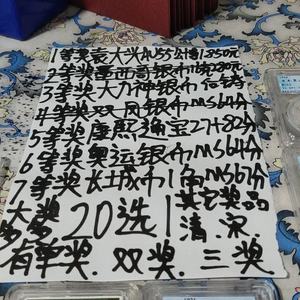 1等奖袁大头AU55公博1350元
2等奖墨西哥银币16克280元
3等奖大力神银币信转
4等奖双凤银币MS64分
5等奖康熙通宝27+82分
6等奖奥运银币MS64分
7等奖长城币1角MS67分
大奖多多 20选1 其它奖品清.宋.
有单奖.双奖.三奖